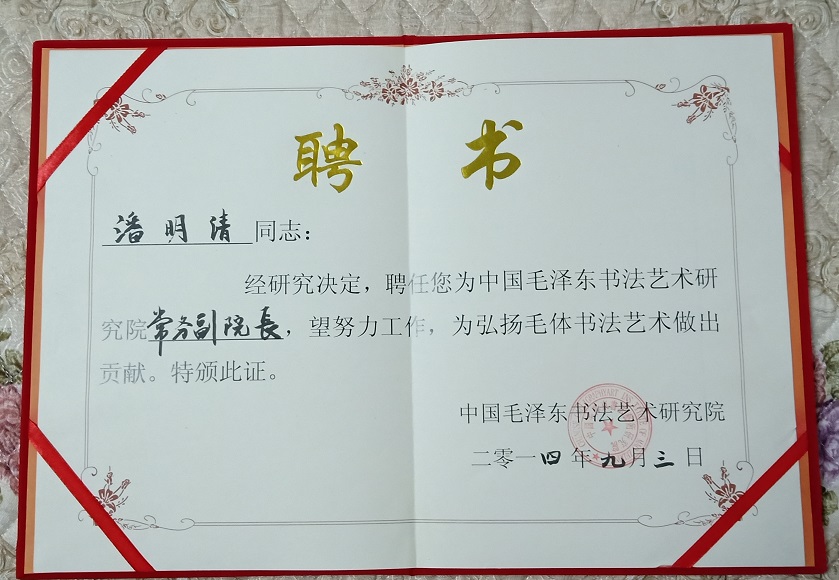 聘书
潘明清同志：
经研究决定，聘任您为中国毛泽东书法艺术研
究院常务副院長，望努力工作，为弘扬毛体书法艺术做出
贡献。特颁此证。
中国毛泽东书法艺术研究院
二零一四年九月三日